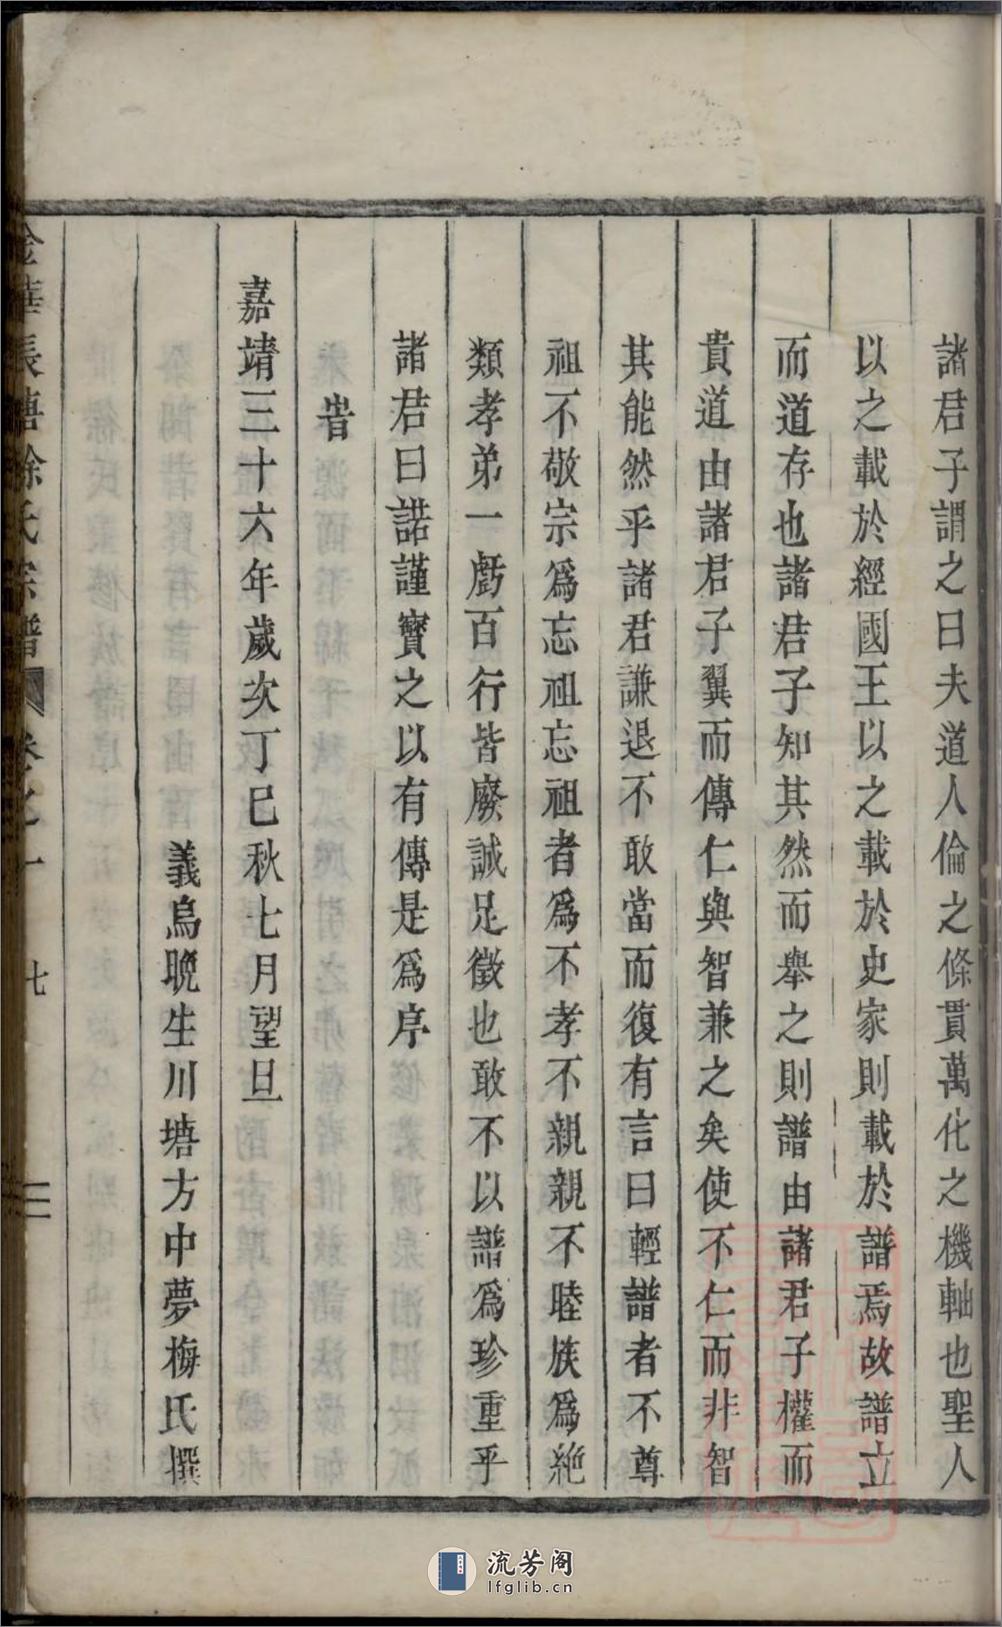 諸君子謂之曰夫道人倫之條貫萬化之機軸也聖人
以之載於經國王以之載於史家則載於譜焉故譜立
而道存也諸君子知其然而舉之則譜由諸君子權而
貴道由諸君子翼而傳仁與智兼之矣使不仁而非智
其能然乎諸君謙退不敢當而復有言曰輕譜者不尊
祖不敬宗為忘祖忘祖者為不孝不親親不睦族為絶
類孝弟一虧百行皆廢誠足徵也敢不以譜為珍重乎
諸君曰諾謹寶之以有傳是為序
旹
嘉靖三十六年歲次丁巳秋七月望旦
義烏晚生川塘方中夢梅氏撰
金華長塘徐氏宗譜 卷之一 七
流芳阁
lfglib.cn